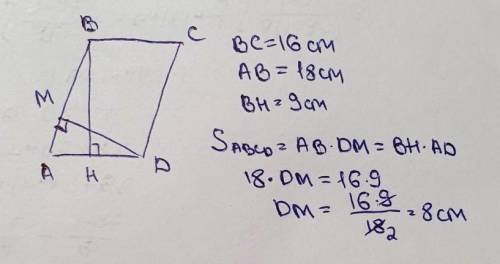 B
C
M
A
H
D
BC=16cm
AB=18cm
BH=9cm
S ABCD = AB·DM = BH·AD
18·DM = 16·9
DM = 16·9/18 2 = 8cm